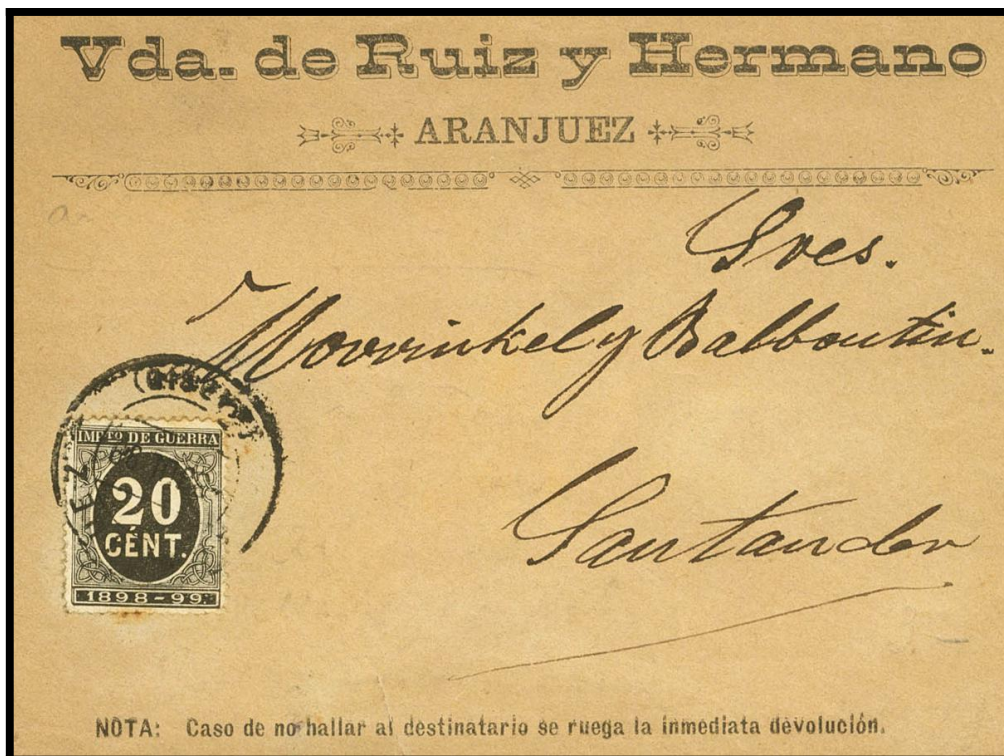 Vda. de Ruiz y Hermano
ARANJUEZ
Sres.
Morrinkel y Balboutin.
Santander
IMPTO DE GUERRA
20
CÉNT.
1898-99.
NOTA: Caso de no hallar al destinatario se ruega la inmediata devolución.